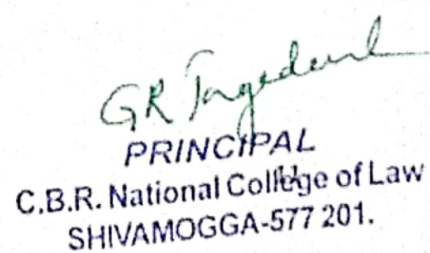 GR Jagadeesh
PRINCIPAL
C.B.R. National College of Law
SHIVAMOGGA-577 201.